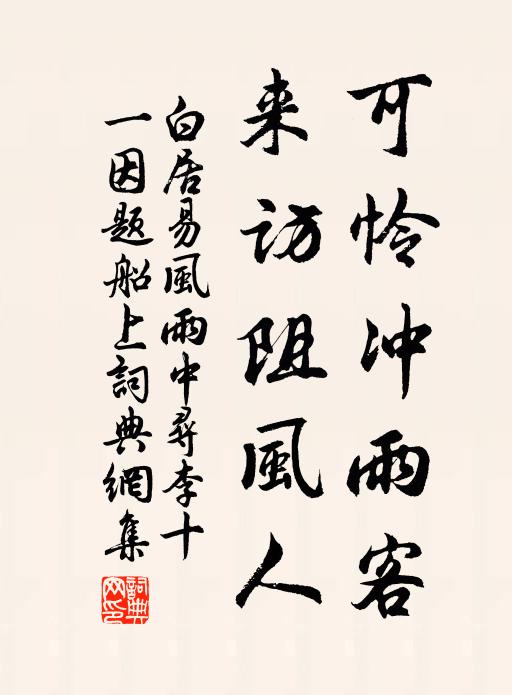 可怜冲雨客
来访阻風人
白居易風雨中尋李十
一因题船上詞典網集
詞典網印